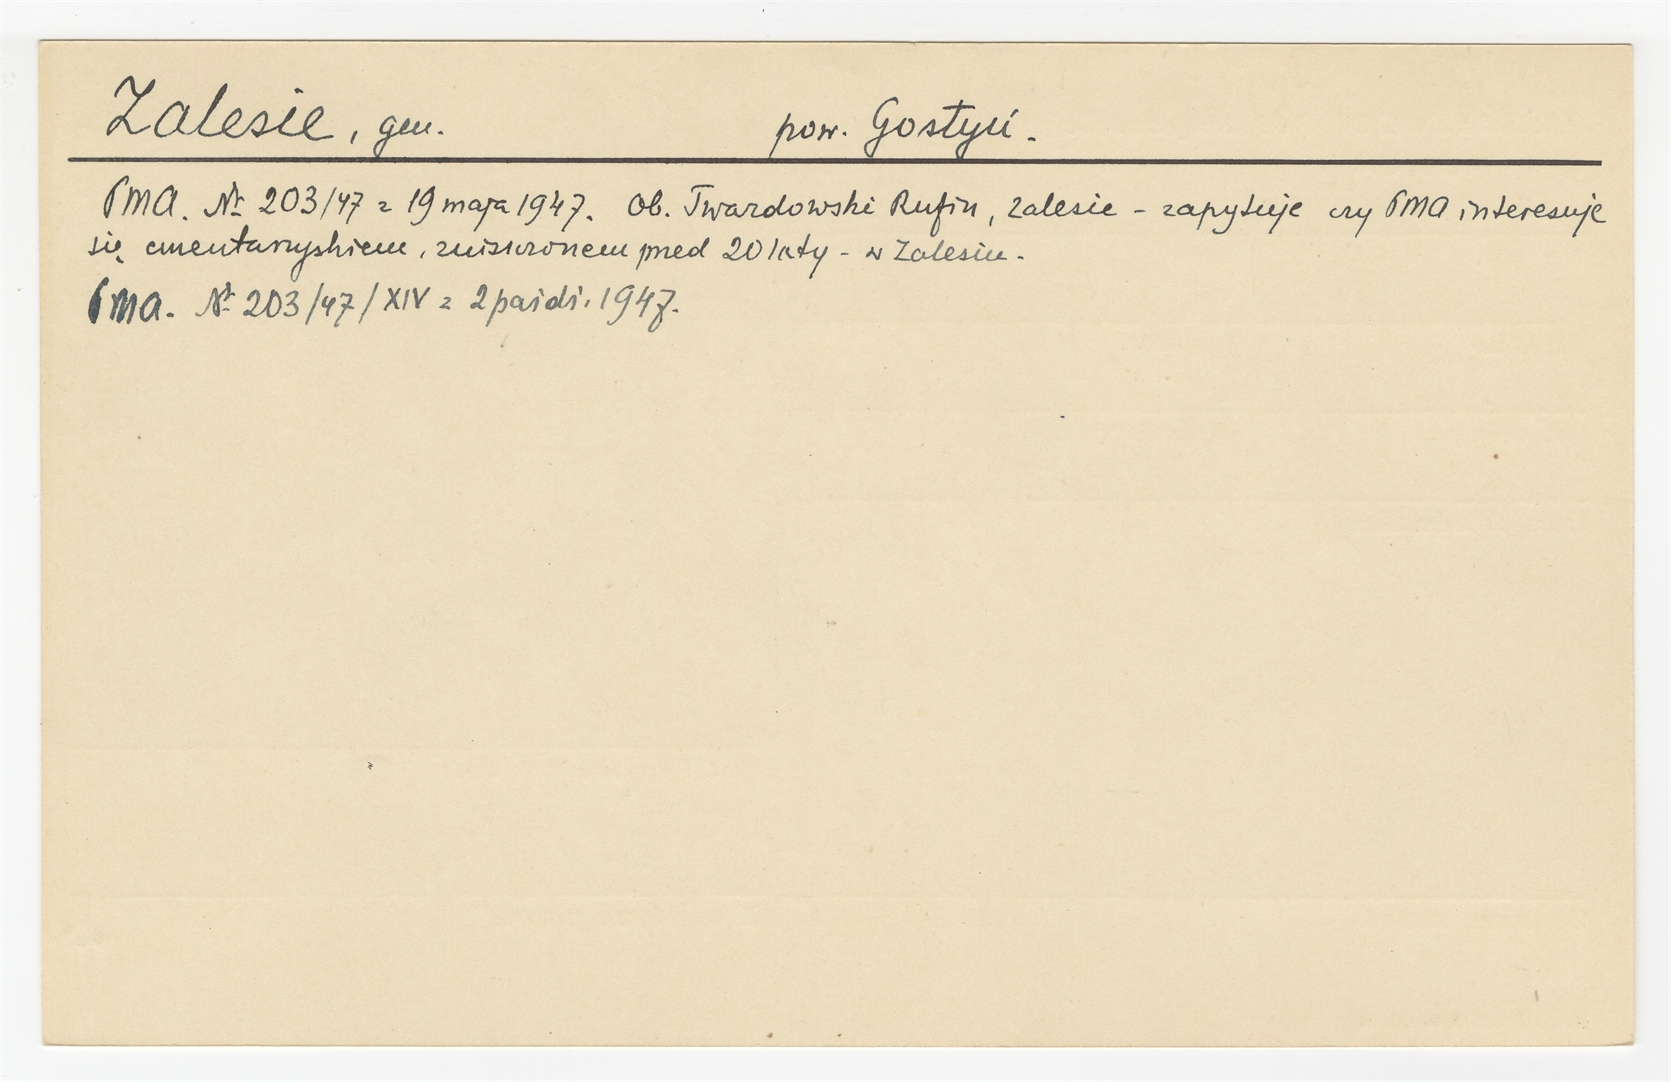 Zalesie, gm. pow. Gostyń.
PMA. Nr 203/47 z 19 maja 1947. Ob. Twardowski Rufin, Zalesie - zapytuje czy PMA interesuje
się cmentarzyskiem, zniszczonem przed 20 laty - w Zalesiu.
PMA. Nr 203/47/XIV z 2 paźdź. 1947.